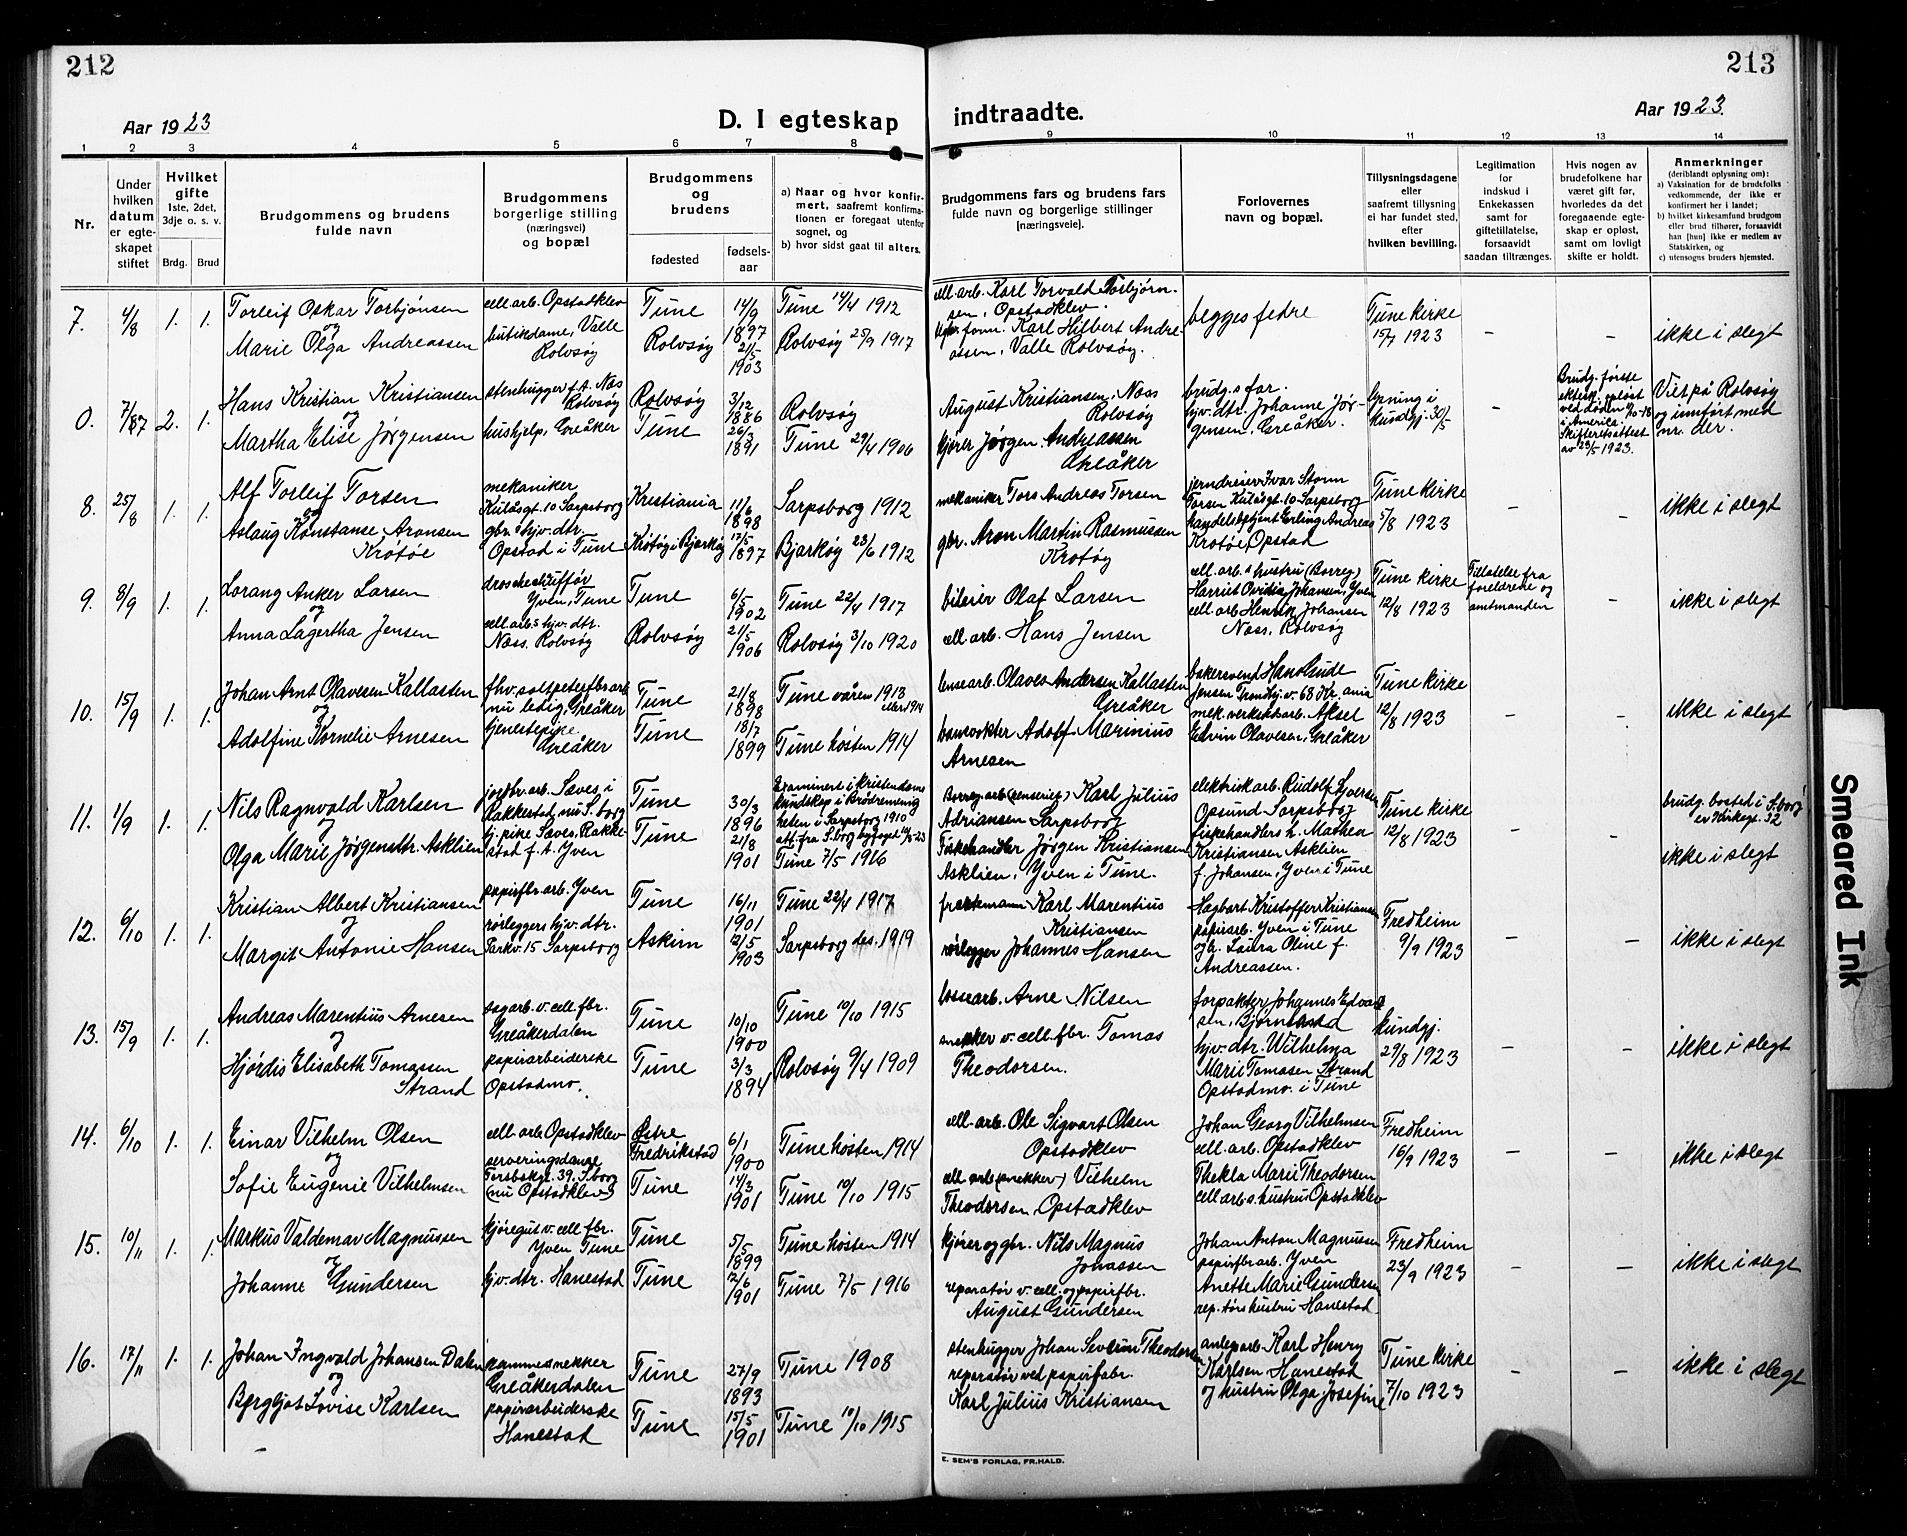 212
213
Aar 1923
D. I egteskap indtraadte.
Aar 1923.
1 2 3 4 5 6 7 8 9 10 11 12 13 14
Nr.
Under hvilken datum er egteskapet stiftet
Hvilket gifte
1ste, 2det, 3dje o. s. v.
Brdg. Brud
Brudgommens og brudens fulde navn
Brudgommens borgerlige stilling (næringsvei) og bopæl
Brudgommens og brudens
fødested
fødselsaar
a) Naar og hvor konfirmert, saafremt konfirmationen er foregaat utenfor sognet, og
b) hvor sidst gaat til alters.
Brudgommens fars og brudens fars fulde navn og borgerlige stillinger (næringsveie).
Forlovernes navn og bopæl.
Tillysningsdagene eller saafremt tillysning ei har fundet sted, efter hvilken bevilling.
Legitimation for indskud i Enkekassen samt for giftetillatelse, forsaavidt saadan tiltrænges.
Hvis nogen av brudefolkene har været gift før, hvorledes da det foregaaende egteskap er opløst, samt om lovlig skifte er holdt.
Anmerkninger
(deriblandt oplysning om):
a) Vaksination for de brudefolks vedkommende, der ikke er konfirmert her i landet;
b) hvilket kirkesamfund brudgom eller brud tilhører, forsaavidt han [hun] ikke er medlem av Statskirken, og
c) utensogns bruders hjemsted.
7. 4/8 1. 1.
Torleif Oskar Torbjönsen
og
Marie Olga Andreassen
cell.arb. Opstadklev
butikdame, Valle
Rolvsøy
Tune
Rolvsøy
14/9
1897
21/5
1903
Tune 14/4 1912
Rolvsøy 25/9 1917
cell. arb. Karl Torvald Torbjørnsen, Opstadklev.
form. Karl Hilbert Andreassen, Valle Rolvsøy.
begges fedre
Tune kirke
15/7 1923
–
–
ikke i slegt
0. 7/87 2. 1.
Hans Kristian Kristiansen
og
Martha Elise Jørgensen
stenhugger f.t. Næs
Rolvsøy
hushjelp, Greåker
Rolvsøy
Tune
3/12
1886
26/3
1891
Rolvsøy
Tune 29/4 1906
August Kristiansen, Næss
Rolvsøy
kjører Jørgen Andreassen
Greåker
brudg.s far.
hjv. dtr. Johanne Jørgensen, Greåker.
lysning i
kundgj. 30/5
–
Brudg. første
ektesk. opløst
ved døden 9/10-18
i America.
Skifteretsattest
av 23/5 1923.
Viet på Rolvsøy
og innført med
nr. der.
8. 25/8 1. 1.
Alf Torleif Torsen
og
Aslaug Konstanse Aronsen
Krötøe
mekaniker
Kulåsgt. 10 Sarpsborg
gbr.s hjv. dtr.
Opstad i Tune
Kristiania
Krötøy i Bjarkøy
11/6
1898
17/5
1897
Sarpsborg 1912
Bjarkøy 23/6 1912
mekaniker Tors Andreas Torsen
gbr. Aron Martin Rasmussen
Krotøy
jerndreier Ivar Storm
Torsen Kulåsgt. 10 Sarpsborg
handelsbetjent Erling Andreas
Krotøe, Opstad
Tune kirke
5/8 1923
–
–
ikke i slegt
9. 8/9 1. 1.
Lorang Anker Larsen
og
Anna Lagertha Jensen
droschechufför
Yven, Tune
cell. arb.s hjv. dtr.
Næss. Rolvsøy
Tune
Rolvsøy
6/5
1902
21/5
1906
Tune 22/4 1917
Rolvsøy 3/10 1920
bileier Olaf Larsen
cell. arb. Hans Jensen
cell. arb.s hustru (Borreg)
Harriet Ovidia Johansen, Yven
cell. arb. Henrik Johansen
Næss, Rolvsøy
Tune kirke
12/8 1923
Tillatelse fra
foreldrene og
amtmanden
–
ikke i slegt
10. 15/9 1. 1.
Johan Arnt Olavesen Kallasten
og
Adolfine Kornelie Arnesen
fhv. saltpeterfbr.arb
nu ledig, Greåker
tjenestepike
Greåker
Tune
Tune
21/8
1898
18/7
1899
Tune våren 1913
eller 1914
Tune høsten 1914
lensearb. Olaves Andersen Kallasten
Greåker
banevokter Adolf Marinius
Arnesen
bakersvend Hans Gude
Jensen Trondhj.v. 68 Kr. ania
mek. verkstd arb. Aksel
Edvin Olavesen, Greåker
Tune kirke
12/8 1923
–
–
ikke i slegt
11. 1/9 1. 1.
Nils Ragnvald Karlsen
og
Olga Marie Jørgensdtr. Asklien
jordbr. arb. Sæves, i
Rakkestad, nu S.borg
tj. pike Sæves, Rakkestad f.t. Yven
Tune
Tune
30/3
1896
21/8
1901
Examinert i kristendoms
kundskap i Brödremenigheten i Sarpsborg 1910
Tune 7/5 1916
Karl Julius
Adriansen Sarpsborg
Fiskehandler Jørgen Kristiansen
Asklien, Yven i Tune.
elektrik.arb. Rudolf
Opsund Sarpsborg
fiskehandlers h. Mathea
Kristiansen Asklien
f. Johansen, Yven i Tune
Tune kirke
12/8 1923
–
–
brudg. bosted i S.borg
er Kirkegt. 32
ikke i slegt
12. 6/10 1. 1.
Kristian Albert Kristiansen
og
Margit Antonie Hansen
papirfbr. arb. Yven
rørleggers hjv. dtr.
Parkv. 15 Sarpsborg
Tune
Askim
16/11
1901
12/5
1903
Tune 22/4 1917
Sarpsborg des. 1919
Karl Marentius
Kristiansen
rørlegger Johannes Hansen
Hagbart Kristoffer Kristiansen
papirarb. Yven i Tune
og h. Laura Oline f.
Andreassen.
Fredheim
9/9 1923
–
–
ikke i slegt
13. 15/9 1. 1.
Andreas Marentius Arnesen
og
Hjørdis Elisabeth Tomassen
Strand
sagarb. v. cell. fbr.
Greåkerdalen
papirarbeiderske
Opstadmo.
Tune
Tune
10/10
1900
3/3
1894
Tune 10/10 1915
Rolvsøy 9/4 1909
lossearb. Arne Nilsen
snekker v. cell. fbr. Tomas
Theodorsen.
forpakter Johannes Edvardsen, Bjørnstad
hjv. dtr. Wilhelma
Marie Tomasen Strand
Opstadmo. i Tune
kundgj.
29/8 1923
–
–
ikke i slegt
14. 6/10 1. 1.
Einar Vilhelm Olsen
og
Sofie Eugenie Vilhelmsen
cell. arb. Opstadklev
serveringsdame
Torsbekgt. 39. S.borg
(nu Opstadklev)
Østre
Fredrikstad
Tune
6/1
1900
14/3
1901
Tune høsten 1914
Tune 10/10 1915
cell. arb. Ole Sigvart Olsen
Opstadklev
cell. arb (snekker) Vilhelm
Theodorsen, Opstadklev
Johan Georg Vilhelmsen
cell. arb. Opstadklev
Thekla Marie Theodorsen
cell arb s. hustru Opstadklev
Fredheim
16/9 1923
–
–
ikke i slegt
15. 10/11 1. 1.
Markus Valdemar Magnussen
og
Johanne Gundersen
kjøregut v. cell. fbr.
Yven Tune
hjv. dtr. Hanestad
Tune
Tune
5/5
1899
12/6
1901
Tune høsten 1914
Tune 7/5 1916
kjører og gbr. Nils Magnus
Johassen
reparatør v. cell. og papirfbr.
August Gundersen
Johan Anton Magnussen
papirfbr arb. Yven
Anette Marie Gundersen
rep. tørs hustru Hanestad
Fredheim
23/9 1923
–
–
ikke i slegt
16. 17/11 1. 1.
Johan Ingvald Johansen Dalen
og
Bergljot Lovise Karlsen
rammesnekker
Greåkerdalen
papirarbeiderske
Hanestad
Tune
Tune
27/9
1893
15/5
1901
Tune 1908
Tune 10/10 1915
stenhugger Johan Severin Theodorsen
reparatør ved papirfabr.
Karl Julius Kristiansen
anlegsarb. Karl Henry
Karlsen Hanestad
og hustru Olga Josefine
Tune kirke
7/10 1923
–
–
ikke i slegt
E. SEM'S FORLAG, FR.HALD.
Smeared Ink